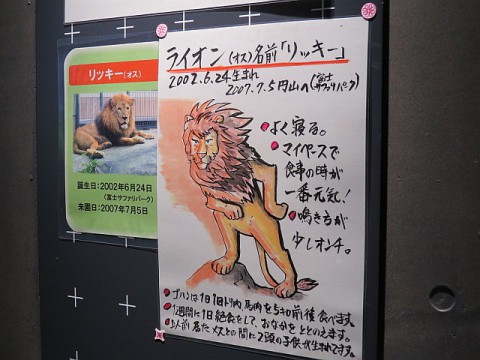 リッキー(オス)
誕生日:2002年6月24日
(富士サファリパーク)
来園日:2007年7月5日
ライオン(オス)名前「リッキー」
2002.6.24生まれ
2007.7.5円山へ(富士サファリパーク)
よく寝る。
マイペースで
食事の時が
一番元気!
鳴き方が
少しオンチ。
ゴハンは1日1回トリ肉、馬肉を5キロ前後食べます。
1週間に1回絶食をして、おなかをととのえます。
メスとの間に2頭の子供が生まれてます。